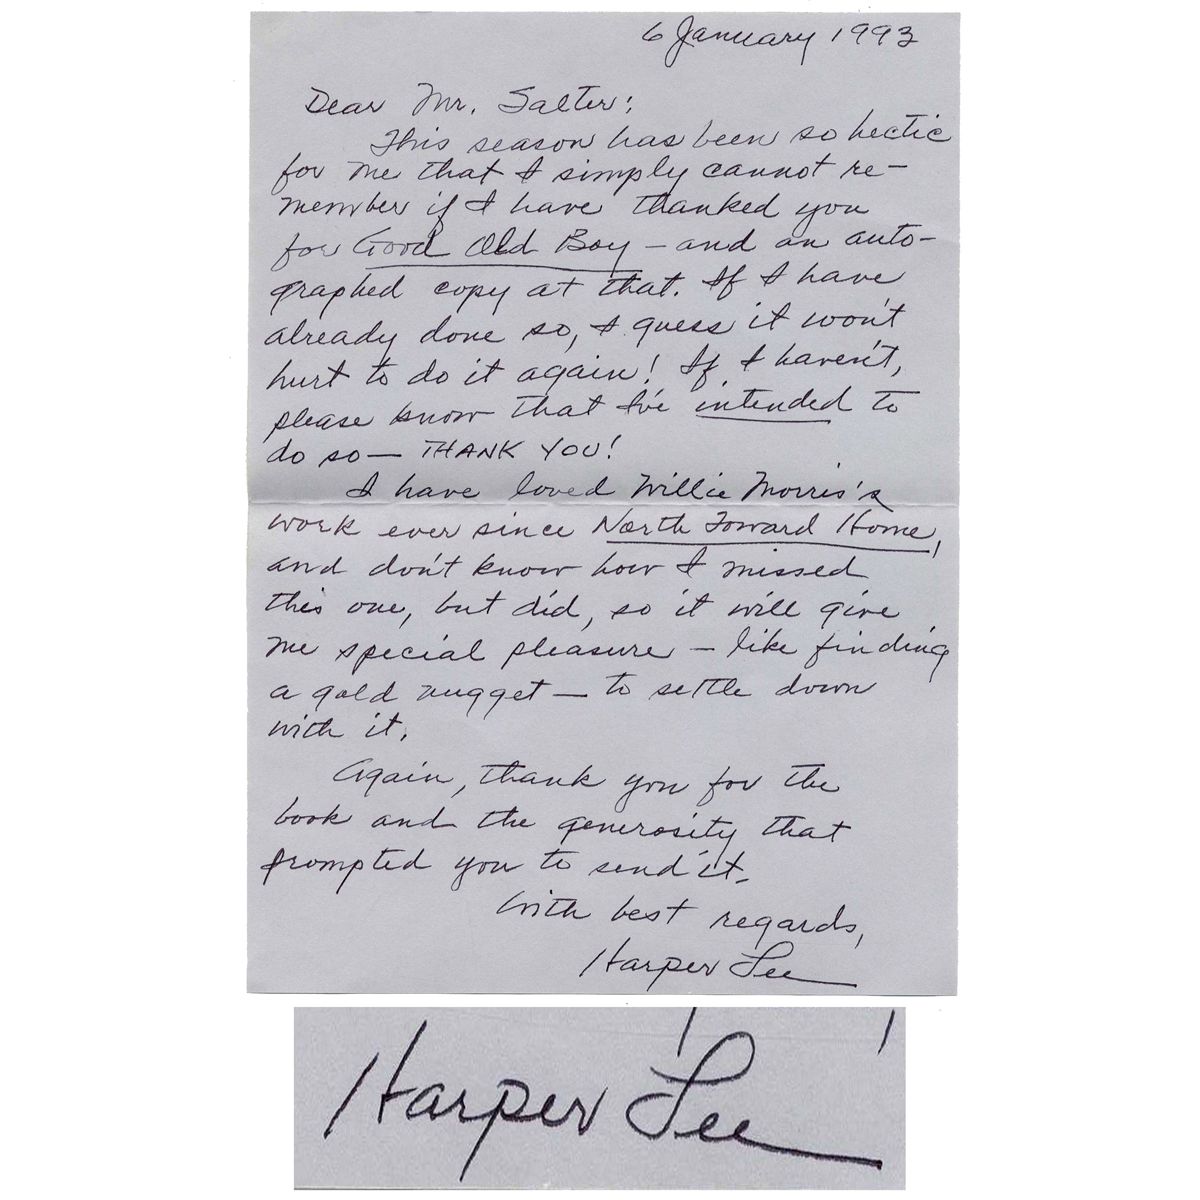 6 January 1993
Dear Mr. Salter:
This season has been so hectic
for me that I simply cannot re-
member if I have thanked you
for Good Old Boy — and an auto-
graphed copy at that. If I have
already done so, I guess it won't
hurt to do it again! If I haven't,
please know that I've intended to
do so — THANK YOU!
I have loved Willie Morris's
work ever since North Toward Home,
and don't know how I missed
this one, but did, so it will give
me special pleasure — like finding
a gold nugget — to settle down
with it.
Again, thank you for the
book and the generosity that
prompted you to send it.
With best regards,
Harper Lee
Harper Lee